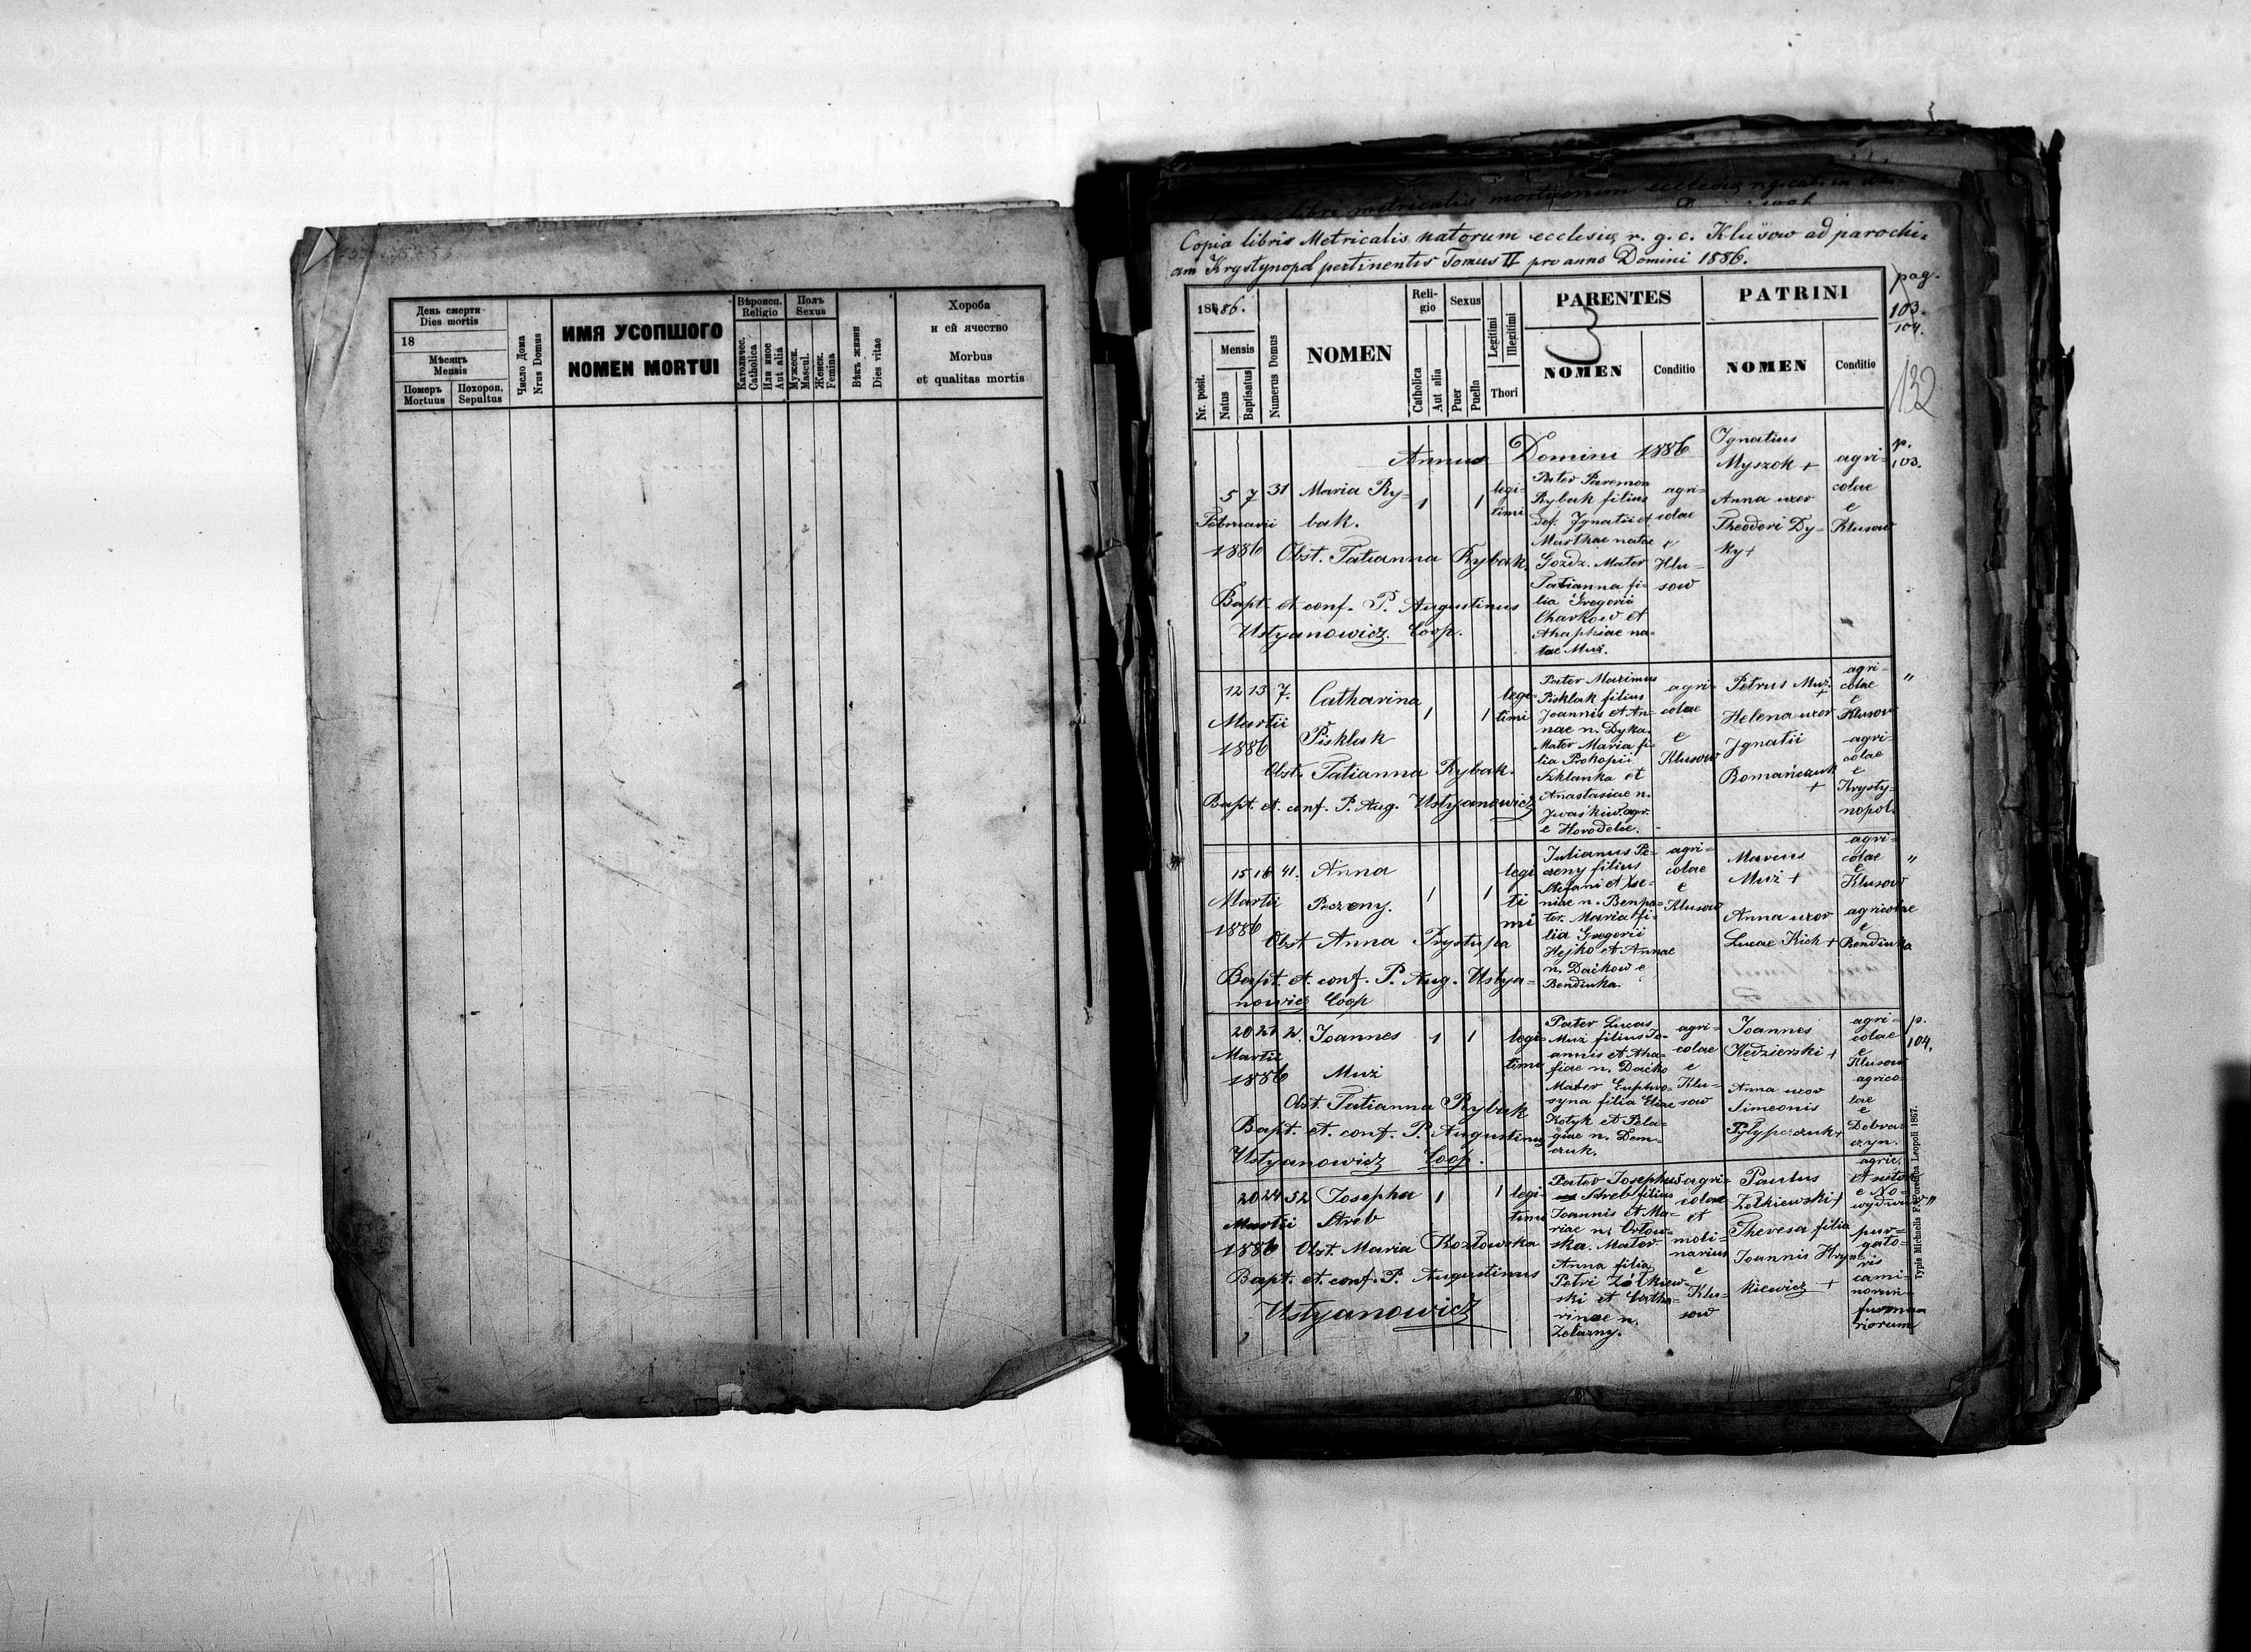 День смерти
Dies mortis
18
Мѣсяць
Mensis
Померъ
Mortuus
Похорон.
Sepultus
Число Дома
Nrus Domus
ИМЯ УСОПШОГО
NOMEN MORTUI
Вѣроисп.
Religio
Католичес.
Catholica
Или иное
Aut alia
Полъ
Sexus
Мужеск.
Mascul.
Женск.
Femina
Вѣкъ жизни
Dies vitae
Хороба
и ей ячество
Morbus
et qualitas mortis
libri metricalis mortuorum ecclesiae
Copia libris Metricalis natorum ecclesiae r. g. c. Klusow ad parochi=
am Krystynopol pertinentis Tomus II pro anno Domini 1886.
pag.
103.
104.
132
1886.
Nr. posit.
Mensis
Natus
Baptisatus
Numerus Domus
NOMEN
Reli-
gio
Catholica
Aut alia
Sexus
Puer
Puella
Legitimi
Illegitimi
Thori
PARENTES
NOMEN
Conditio
PATRINI
NOMEN
Conditio
Annus Domini 1886
5 7 31 Maria Ry=
bak.
Februarii
1886
Obst. Tatianna Rybak.
Bapt. et conf. P. Augustinus
Ustyanowicz. Coop.
1 1 legi=
timi
Pater Paremon
Rybak filius
def. Ignatii et
Marthae natae
Gozdz. Mater
Tatianna fi=
lia Gregorii
Charkow et
Ahaphiae na=
tae Muż.
agri=
colae
e
Klu=
sow
Ignatius
Myszok +
Anna uxor
Theodori Dy=
ky +
agri=
colae
e
Klusow
p.
103.
12 13 7. Catharina
Pisklak
Martii
1886
Obst. Tatianna Rybak.
Bapt. et. conf. P. Aug. Ustyanowicz
1 1 legi=
timi
Pater Maximus
Pisklak filius
Joannis et An=
nae n. Dyka.
Mater Maria fi=
lia Prokopii
Szklanka et
Anastasiae n.
Iwaskiw agr.
e Horodelec.
agri=
colae
e
Klusow
Petrus Muż
+
Helena uxor
Ignatii
Romańczuk
+
agri=
colae
e
Klusow
agri=
colae
e
Krysty=
nopol.
"
15 16 41. Anna
Peczeny.
Martii
1886
Obst Anna Prystupa
Bapt. et. conf. P. Aug. Ustya=
nowicz Coop
1 1 legi
ti
mi
Julianus Pe=
czeny filius
Stefani et Xe=
niae n.
ter. Maria fi=
lia Gregorii
Hejko et Annae
n. Dačkow e
Bendiuha.
agri=
colae
e
Klusow
Marcus
Muż +
Anna uxor
Lucae Kich +
agri=
colae
e
Klusow
agricolae
e
Bendiuha
"
20 21 2. Joannes
Muż
Martii
1886
Obst. Tatianna Rybak
Bapt. et. conf. P. Augustinus
Ustyanowicz Coop.
1 1 legi=
timi
Pater Lucas
Muż filius Jo=
annis et Aha=
fiae n. Dačko
Mater Euphro=
syna filia Eliae
Kotyk et Pela=
giae n. Dem=
czuk.
agri=
colae
e
Klu=
sow
Joannes
Kędzierski +
Anna uxor
Simeonis
Pylypczuk +
agri=
colae
e
Klusow
agrico=
lae
e
Dobra=
czyn.
p.
104.
20 24 52 Josepha
Streb
Martii
1886
Obst. Maria Kozłowska
Bapt. et. conf. P. Augustinus
Ustyanowicz
1 1 legi=
timi
Pater Josephus
Streb filius
Joannis et Ma=
riae n. Orłow=
ska. Mater
Anna filia
Petri Żółkiew=
ski et Catha=
rinae n.
Żelazny.
agri=
colae
et
moli=
narius
e
Klu=
sow
Paulus
Żołkiewski +
Theresa filia
Joannis Hryn=
kiewicz +
agric.
et sutor
e No=
wydwor
pur=
gato=
ris
cami=
norum
fumma
riorum
"
Typis Michaelis F. Poremba Leopoli 1867.